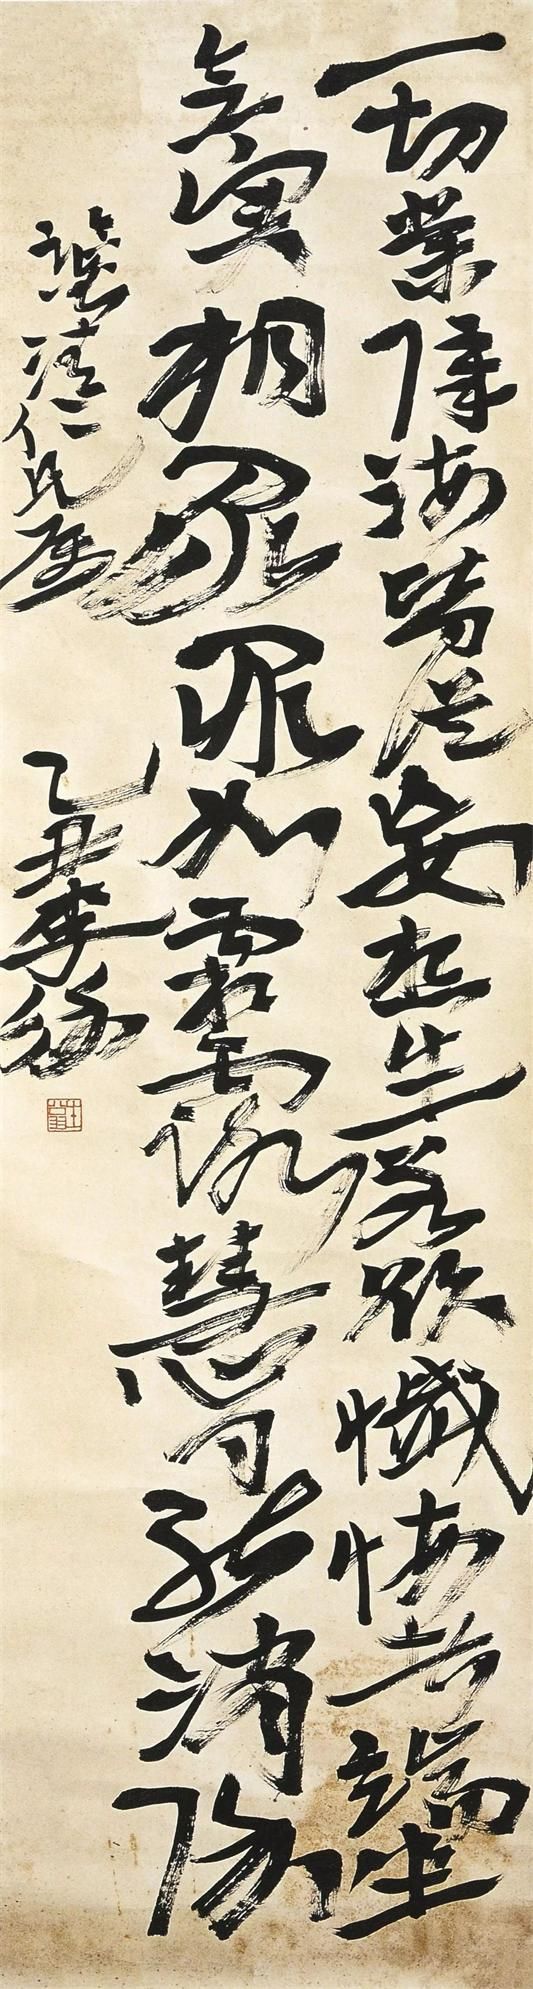 一切業障海皆從妄想生若欲懺悔者端坐
念實相眾罪如霜露慧日能消除
清仁兄屬 乙丑李徐